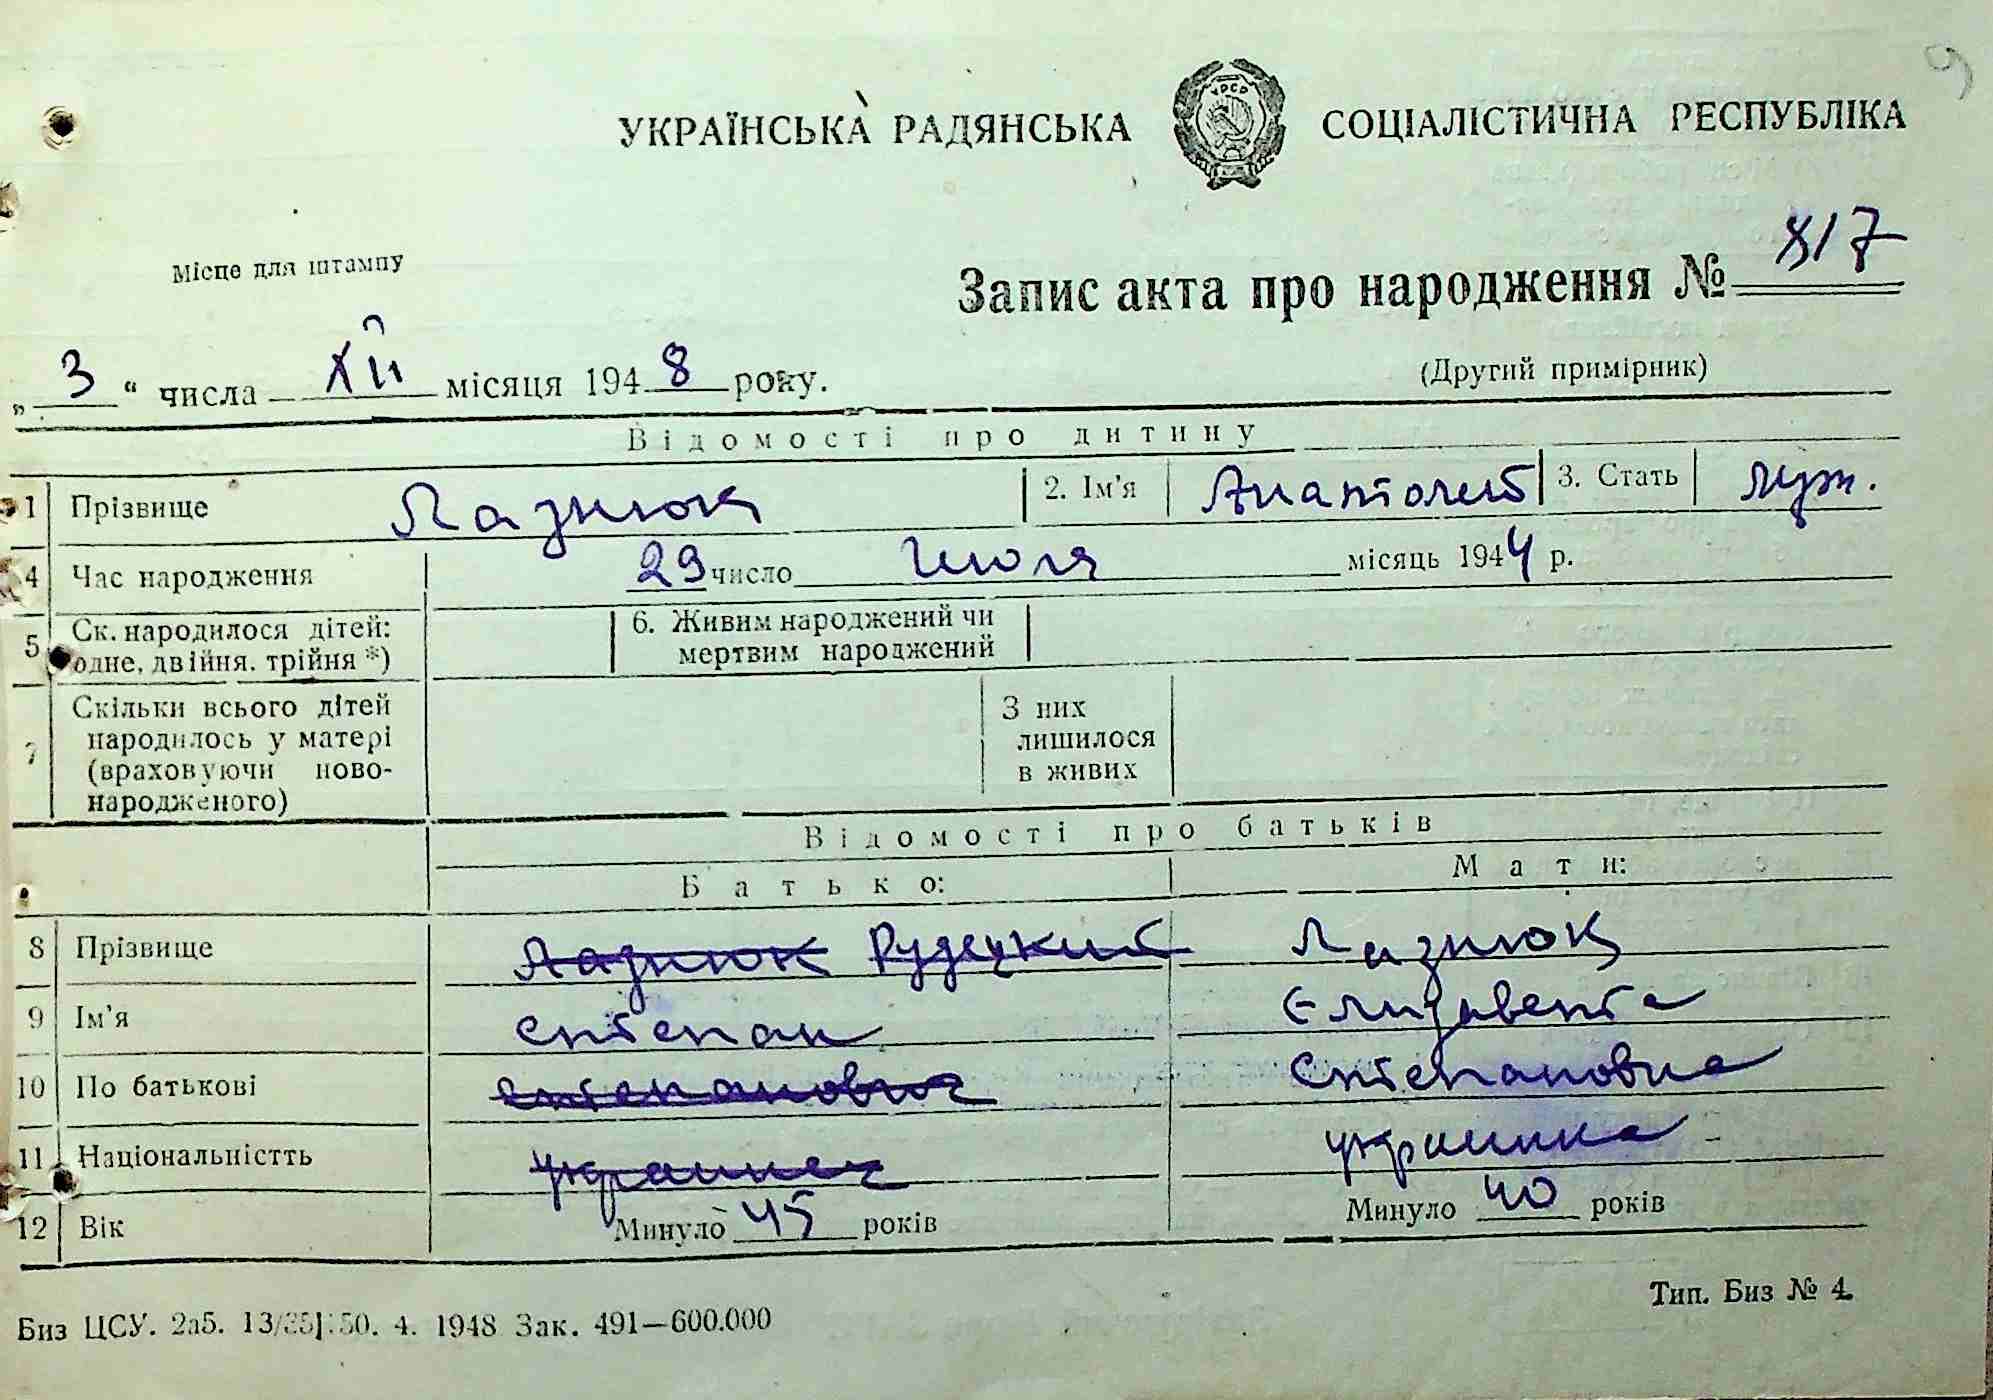 УКРАЇНСЬКА РАДЯНСЬКА СОЦІАЛІСТИЧНА РЕСПУБЛІКА
УРСР
Місце для штампу
Запис акта про народження № 817
„ 3 “ числа XII місяця 1948 року.
(Другий примірник)
Відомості про дитину
1 Прізвище Лазнюк 2. Ім'я Анатолий 3. Стать муж.
4 Час народження 29 число Июля місяць 1944 р.
5 Ск. народилося дітей: одне, двійня. трійня *) 6. Живим народжений чи мертвим народжений
7 Скільки всього дітей народилось у матері (враховуючи ново-народженого) З них лишилося в живих
Відомості про батьків
Батько: Мати:
8 Прізвище Лазнюк Рудецкий Лазнюк
9 Ім'я Степан Єлизавента
10 По батькові Степанович Степановна
11 Національністть украинец украинка
12 Вік Минуло 45 років Минуло 40 років
Биз ЦСУ. 2а5. 4. 1948 Зак. 491—600.000
Тип. Биз № 4.